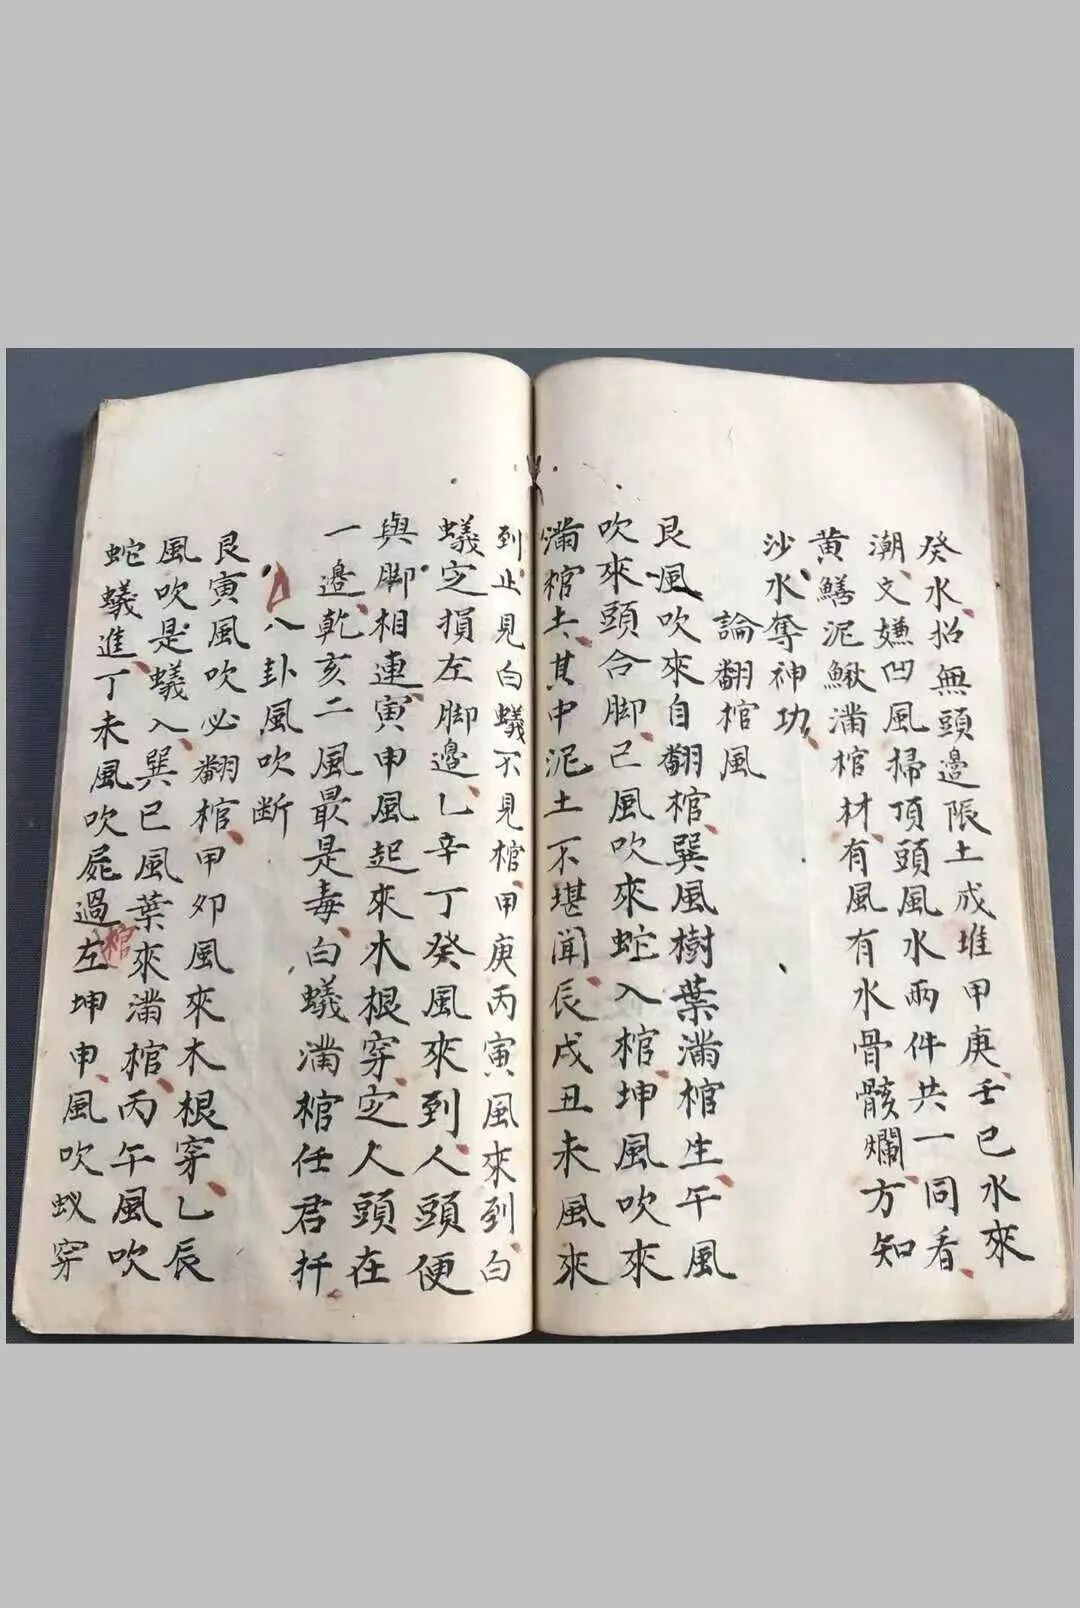 癸水、招無頭邊脹土成堆甲庚、壬巳水來
潮、文嫌凹風掃頂頭風水兩件共一同看、
黄鱔泥鰍滿棺材、有風有水骨骸爛、方知
沙水奪神功、
論翻棺風
艮風吹來自翻棺、巽風樹葉滿棺生、午風
吹來頭合脚、己風吹來蛇入棺、坤風吹來
滿棺土、其中泥土不堪聞、辰戌丑未風來
到、止見白蟻不見棺、甲庚丙寅風來到、白
蟻定損左脚邊、乚辛丁癸風來到、人頭便
與脚相連、寅申風起來木根穿、定人頭在
一邊、乾亥二風最是毒、白蟻滿棺任君扦、
八卦風吹断
艮寅風吹必翻棺、甲夘風來木根穿、乚辰
風吹是蟻入、巽巳風葉來滿棺、丙午風吹
蛇蟻進、丁未風吹屍過左棺坤申、風吹蚁穿